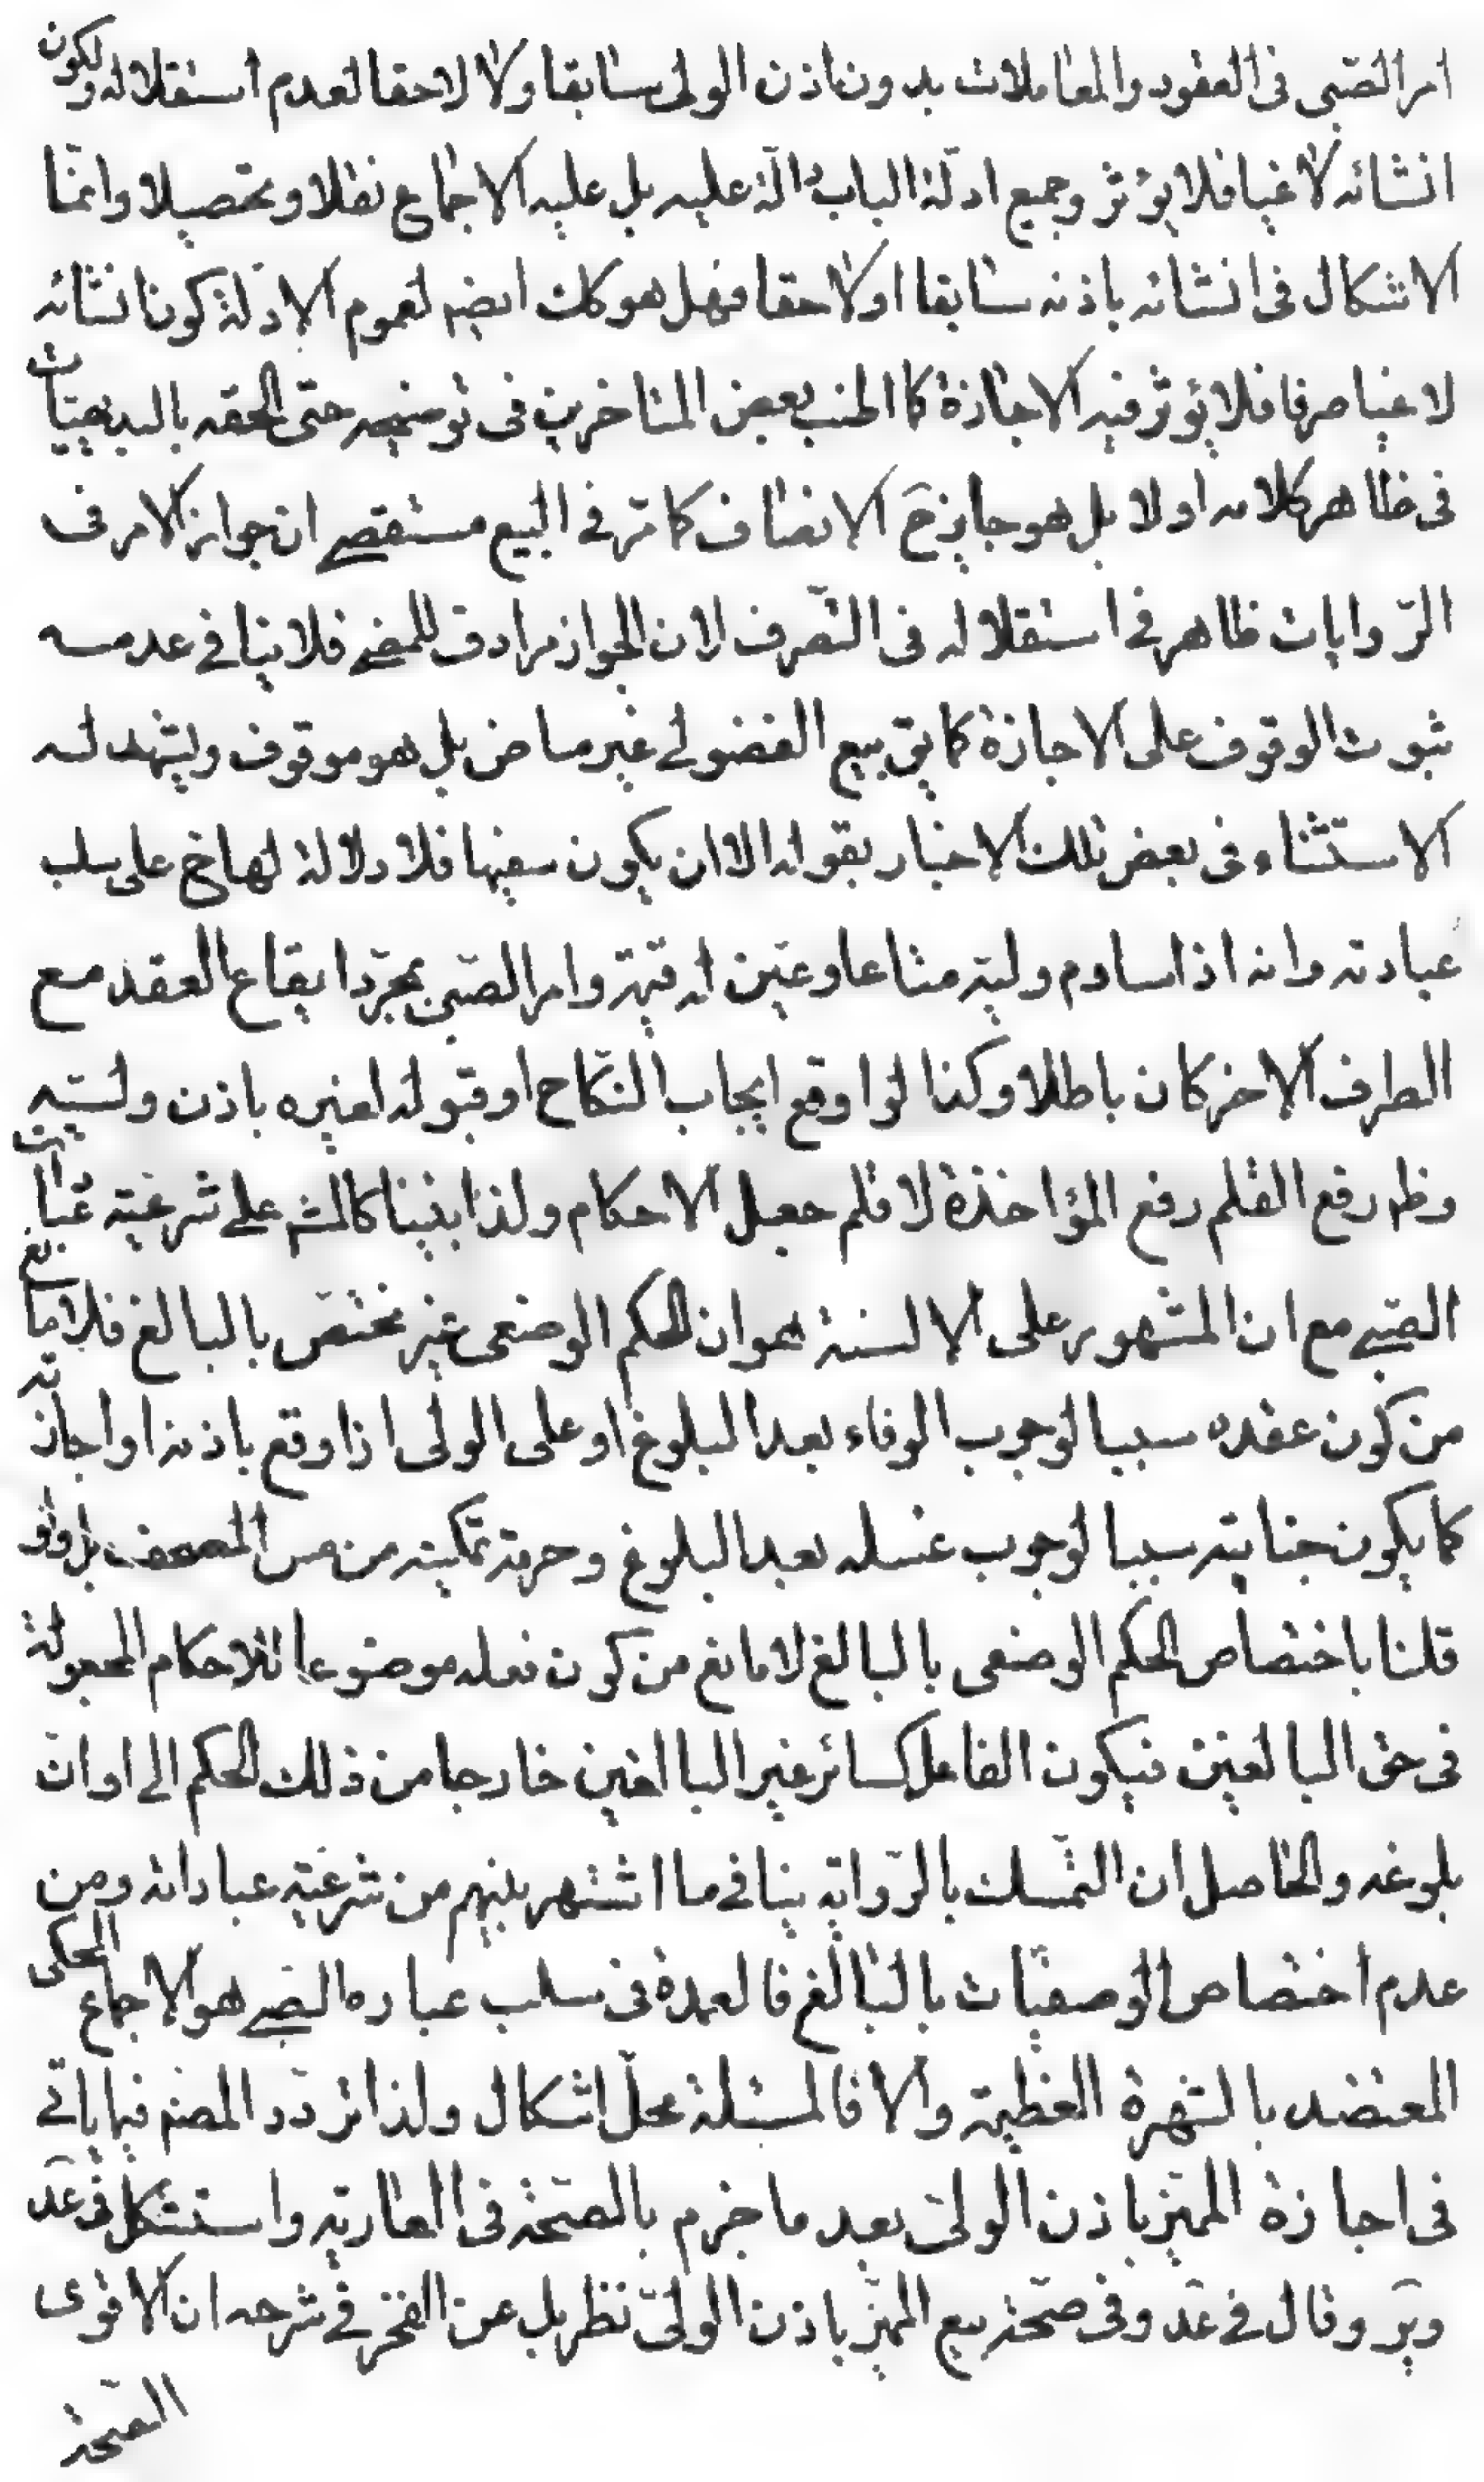 امر الصّبى فى العقود والمعاملات بدون اذن الولى سابقا ولا لاحقا لعدم استقلاله ولكون
انشائه لاغيا فلا يؤثر وجميع ادلّة الباب دالّة عليه بل عليه الاجماع نقلا وتحصيلا وانمّا
الاشكال فى انشائه باذنه سابقا او لاحقا فهل هو كك ايضم لعموم الادلّة كون انشائه
لاغيا صرفا فلا يؤثر فيه الاجازة كما اطنب بعض المتاخرين فى توضيحه حتى الحقه بالبديهيات
فى ظاهر كلامه اولا بل هو جايز ح الانصاف كما مرّ فى البيع مستقصى ان جواز الامر فى
الرّوايات ظاهر فى استقلاله فى التّصرف لان الجواز مرادف للمضى فلا ينافى عدمه
ثبوت الوقوف على الاجازة كما يق بيع الفضولى غير ماض بل هو موقوف ويشهد له
الاستثناء فى بعض تلك الاخبار بقوله الا ان يكون سفيها فلا دلالة لها ح على سلب
عبادته وانه اذا ساوم وليّه متاعا وعيّن له قيمة وامر الصّبى بمجرّد ايقاع العقد مع
الطرف الاخر كان باطلا وكذا لو اوقع ايجاب النّكاح او قبوله لغيره باذن وليّه
وظم رفع القلم رفع المؤاخذة لا قلم جعل الاحكام ولذا بنينا كالمشم على شرعيّة عبادات
الصّبى مع ان المشهور على الالسنة هو ان الحكم الوضعى غير مختص بالبالغ فلا مانع
من كون عقده سببا لوجوب الوفاء بعد البلوغ او على الولى اذا وقع باذنه او اجازته
كما يكون جنابته سببا لوجوب غسله بعد البلوغ وحرمة تمكينه من مس المصحف بل ولو
قلنا باختصاص الحكم الوضعى بالبالغ لا مانع من كون فعله موضوعا للاحكام المجعولة
فى حق البالغين فيكون الفاعل كسائر غير البالغين خارجا من ذلك الحكم الى اوان
بلوغه والحاصل ان التّمسك بالرّواية ينافى ما اشتهر بينهم من شرعيّة عباداته ومن
عدم اختصاص الوضعيّات بالبالغ فالعمدة فى سلب عباره الصّبى هو الاجماع المحكى
المعتضد بالشهرة العظيمة والا فالمسئلة محلّ اشكال ولذا تردّد المصنم فيما ياتى
فى اجازة المميّز باذن الولىّ بعد ما جزم بالصّحة فى العارية واستشكل فى عدّ
ويرّ وقال فى عدّ وفى صحّة بيع المميّز باذن الولىّ نظر بل عن الفخر فى شرحه ان الاقوى
الصّحة